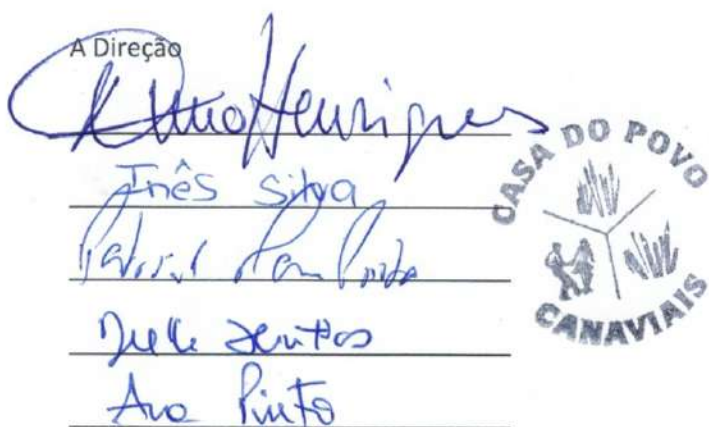 A Direção
Nuno Henriques
Inês Silva
Santos
Ana Pinto
CASA DO POVO
CANAVIAIS